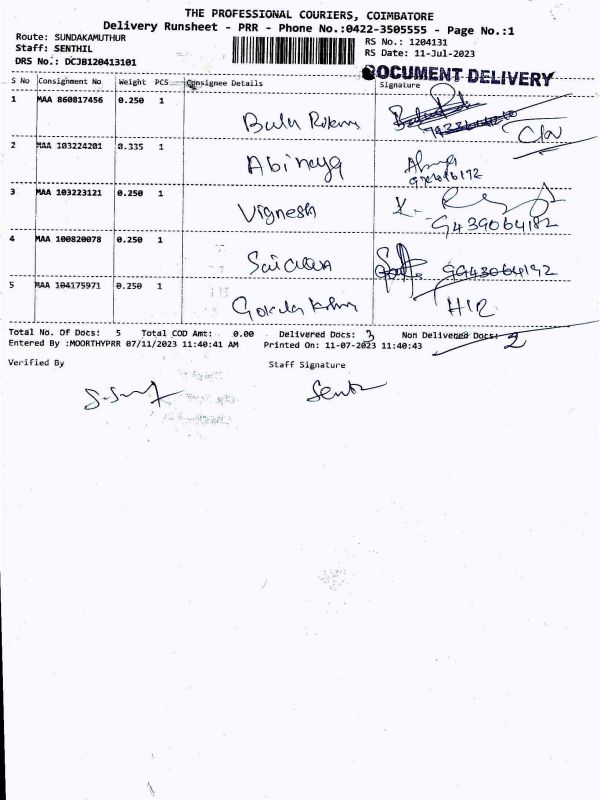 THE PROFESSIONAL COURIERS, COIMBATORE
Delivery Runsheet - PRR - Phone No.:0422-3505555 - Page No.:1
Route: SUNDAKAMUTHUR
RS No.: 1204131
Staff: SENTHIL
RS Date: 11-Jul-2023
DRS No.: DCJB120413101
DOCUMENT DELIVERY
S No Consignment No Weight PCS Consignee Details Signature
1 MAA 860817456 0.250 1
2 MAA 103224201 0.335 1 Abinaya
3 MAA 103223121 0.250 1 Vignesh
9439064182
4 MAA 100820078 0.250 1
5 MAA 104175971 0.250 1
Total No. Of Docs: 5 Total COD Amt: 0.00 Delivered Docs: 3 Non Delivered Docs: 2
Entered By :MOORTHYPRR 07/11/2023 11:40:41 AM Printed On: 11-07-2023 11:40:43
Verified By Staff Signature